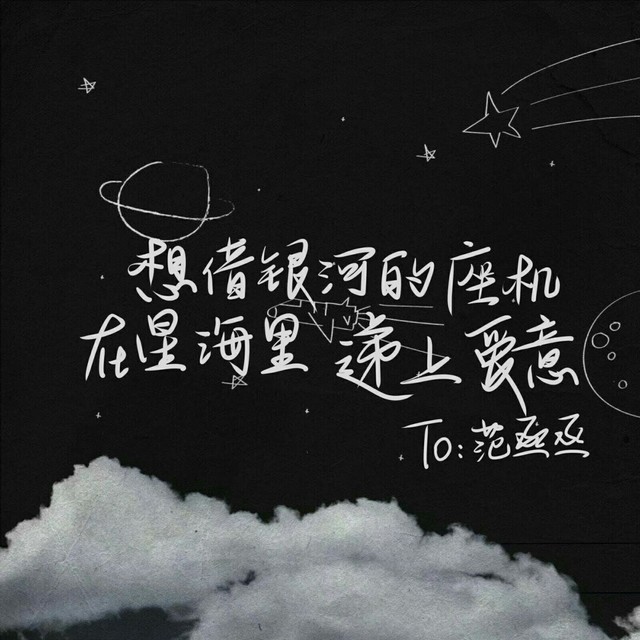 想借银河的座机
在星海里递上爱意
To:范丞丞